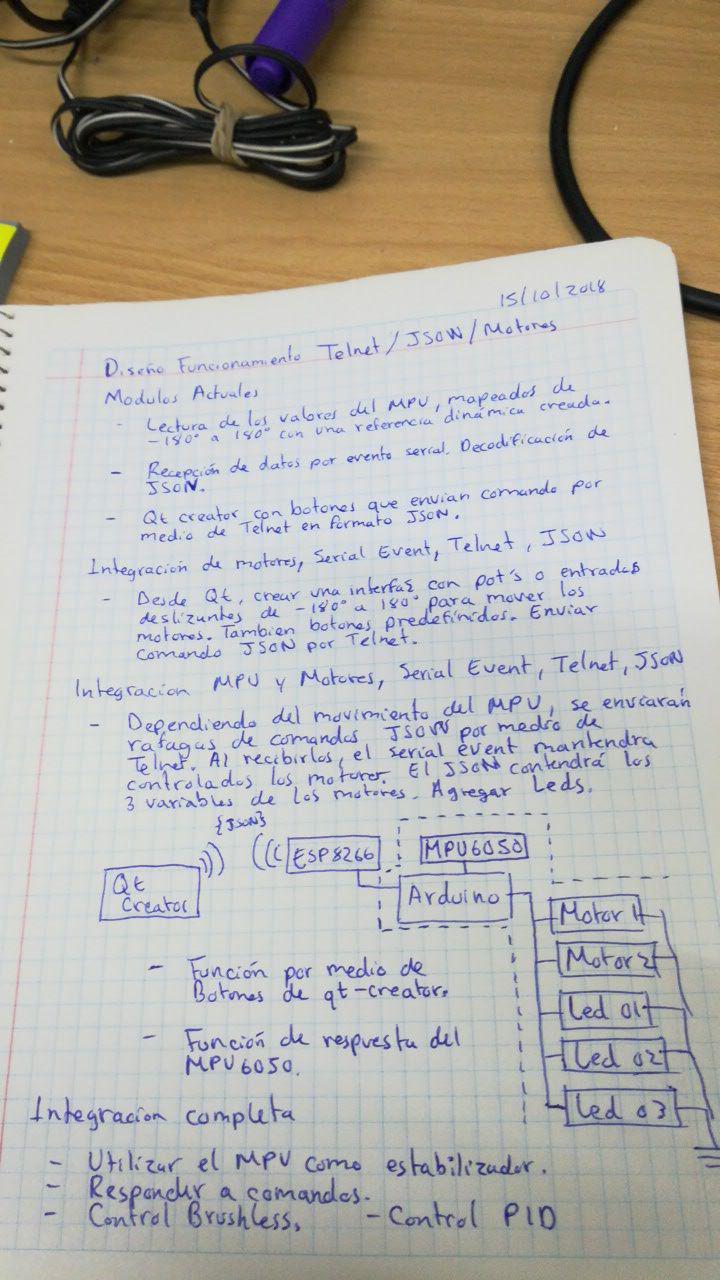 15/10/2018
Diseño Funcionamiento Telnet/JSON/Motores
Modulos Actuales
- Lectura de los valores del MPU, mapeados de
-180° a 180° con una referencia dinámica creada.
- Recepción de datos por evento serial. Decodificación de
JSON.
- Qt creator con botones que envian comando por
medio de Telnet en formato JSON.
Integración de motores, Serial Event, Telnet, JSON
- Desde Qt, crear una interfaz con pot's o entradas
deslizantes de -180° a 180° para mover los
motores. Tambien botones predefinidos. Enviar
comando JSON por Telnet.
Integracion MPU y Motores, Serial Event, Telnet, JSON
- Dependiendo del movimiento del MPU, se enviarán
rafagas de comandos JSON por medio de
Telnet. Al recibirlos, el serial event mantendra
controlados los motores. El JSON contendrá los
3 variables de los motores. Agregar Leds.
{JSON}
Qt
Creator
ESP8266
MPU6050
Arduino
Motor 1
Motor 2
Led 01
Led 02
Led 03
- Función por medio de
Botones de qt-creator.
- Función de respuesta del
MPU6050.
Integracion completa
- Utilizar el MPU como estabilizador.
- Responder a comandos.
- Control Brushless. - Control PID